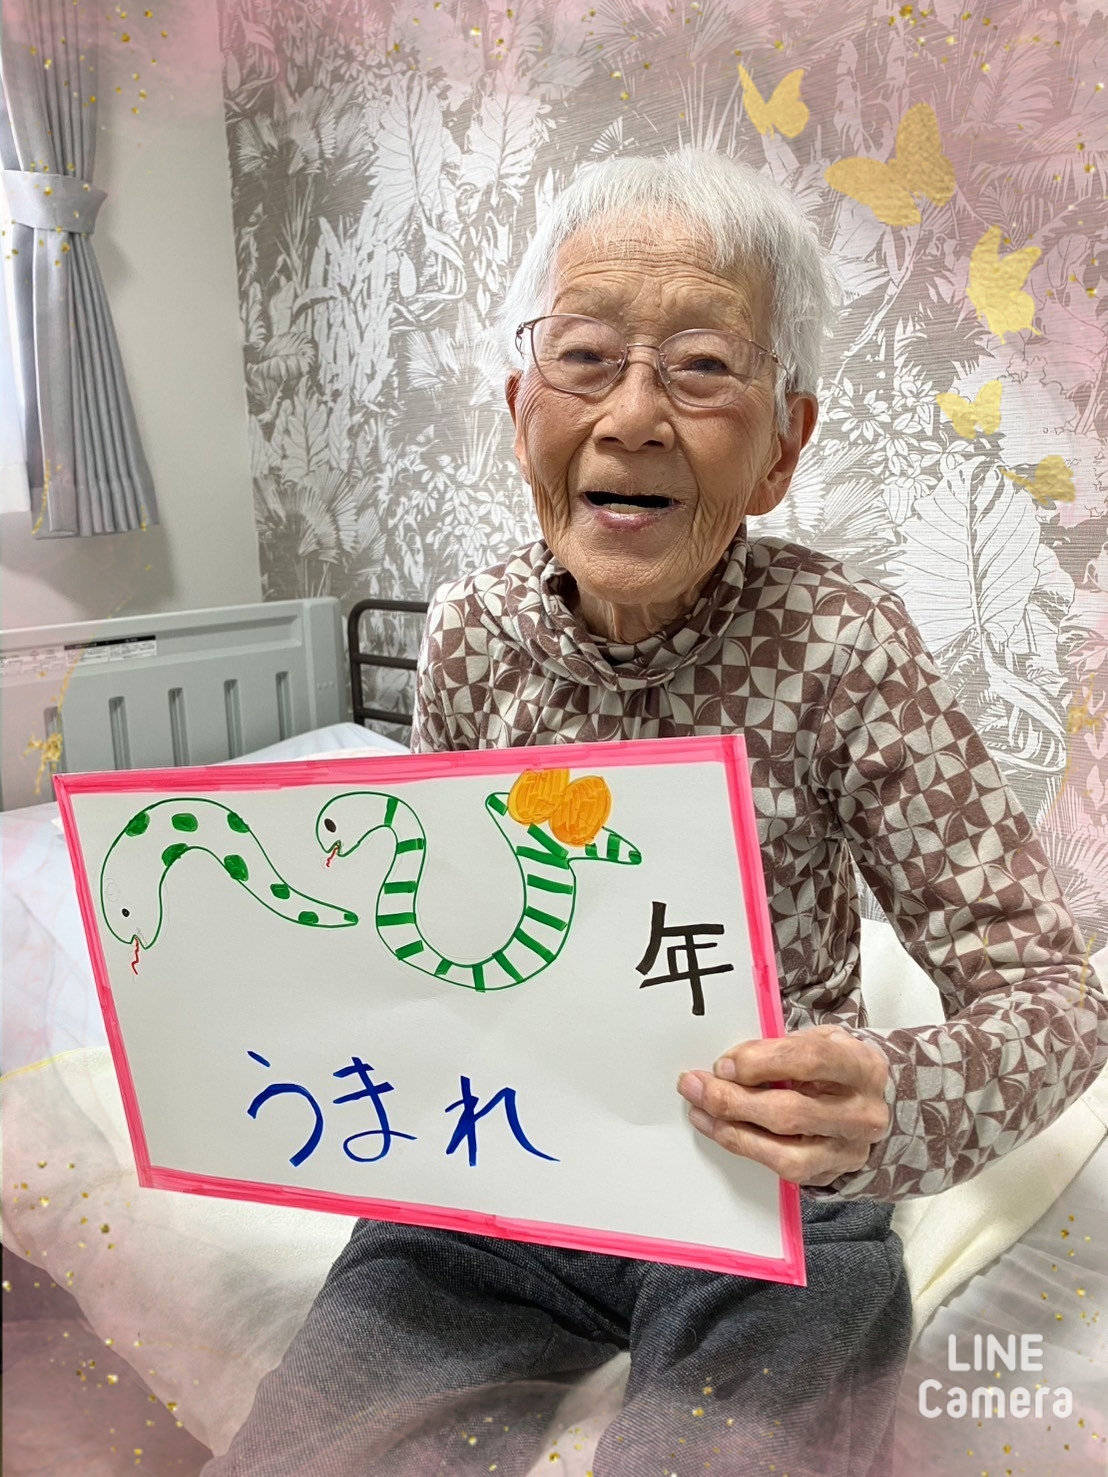 年
うまれ
LINE
Camera